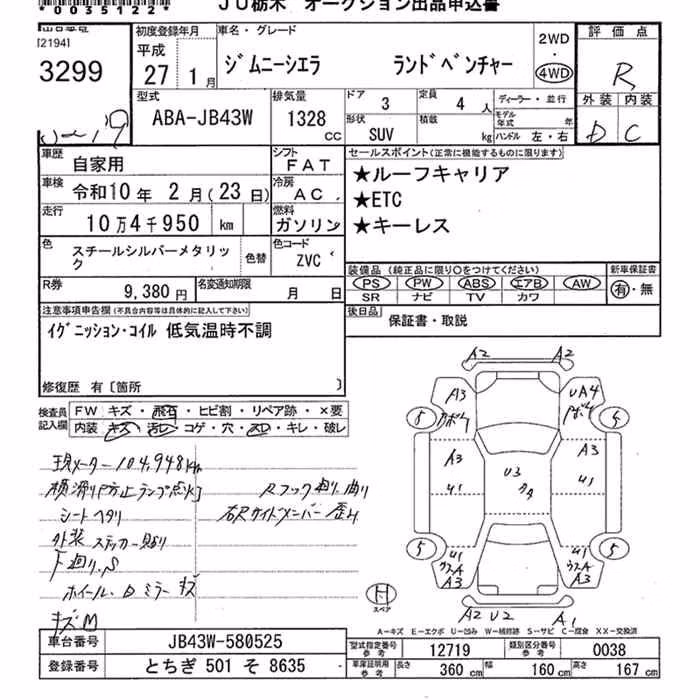 *0035122*
JU栃木 オークション出品申込書
(21941
3299
初度登録年月
平成
27 1 月
車名・グレード
ジムニーシエラ ランドベンチャー
2WD
・
4WD
評価点
R
外装 内装
D C
型式
ABA-JB43W
排気量
1328
cc
ドア 3
定員 4 人
形状 SUV
積載 kg
ディーラー・並行
モデル年式 年
ハンドル 左・右
車歴 自家用
シフト FAT
車検 令和10 年 2 月(23 日)
冷房 AC
走行 10万4千950 km
燃料 ガソリン
色 スチールシルバーメタリック
色替
色コード ZVC
R券 9,380 円
名変通知期限 月 日
セールスポイント(正常に機能するものに限ります)
★ルーフキャリア
★ETC
★キーレス
装備品 (純正品に限り○をつけてください)
PS PW ABS エアB AW
SR ナビ TV カワ
新車保証書
有・無
後日品 保証書・取説
注意事項申告欄(不具合内容等は具体的に記入して下さい)
イグニッション・コイル 低気温時不調
修復歴 有〔箇所 〕
検査員記入欄
FW キズ・飛石・ヒビ割・リペア跡・×要
内装 キズ・汚レ・コゲ・穴・スレ・キレ・破レ
現メーター 104,948km
横滑り防止ランプ点灯
シートヘタリ
外装 ステッカー貼り
下廻り、S
ホイール、Dミラー キズ
キズM
Rフック廻り曲り
右Rサイドメンバー歪み
A2 A2
A3 UA4
5 5
A3 A3
U1 U3 U1
5 5
U1 U1
A3 A3
H
スペア
A2 U2 A1
A―キズ E―エクボ U―凹み W―補修跡 S―サビ C―腐食 XX―交換済
車台番号 JB43W-580525
登録番号 とちぎ 501 そ 8635
型式指定番号 参考 12719
類別区分番号 参考 0038
車庫証明用 参考 長さ 360 cm 幅 160 cm 高さ 167 cm